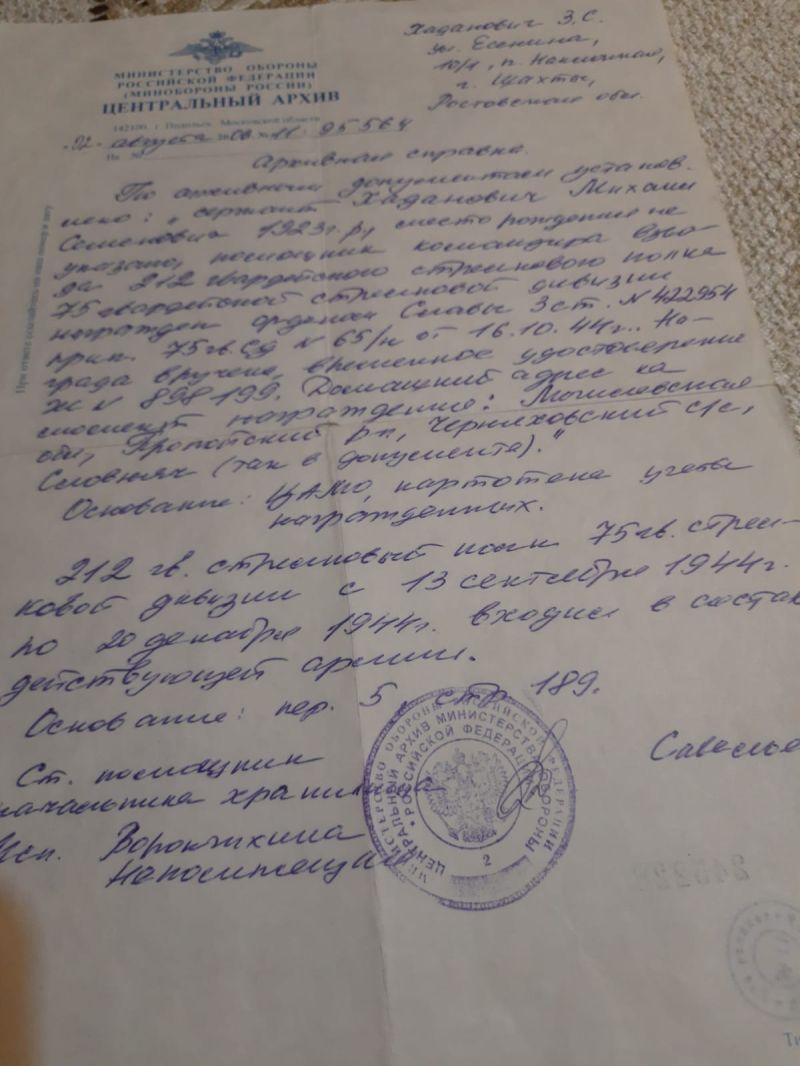 МИНИСТЕРСТВО ОБОРОНЫ
РОССИЙСКОЙ ФЕДЕРАЦИИ
(МИНОБОРОНЫ РОССИИ)
ЦЕНТРАЛЬНЫЙ АРХИВ
142100, г. Подольск, Московской области
"02" августа 2008 № 11 - 95564
На №
Хаданович З.С.
ул. Есенина,
10/1, п.
г. Шахты,
Ростовская обл.
При ответе ссылайтесь на наш номер и дату
Архивная справка.
По архивным документам установ-
лено: "сержант Хаданович Михаил
Семенович 1923г.р., место рождения не
указано, помощник командира взво-
да 212 гвардейского стрелкового полка
75 гвардейской стрелковой дивизии
награжден орденом Славы 3 ст. № 422954
прик. 75 гв. сд № 65/н от 16.10.44г.. На-
града вручена, временное удостоверение
ж № 898199. Домашний адрес на
момент награждения: Могилевская
обл, Пропойский р-н, Черниховский с/с,
Словнях (так в документе)."
Основание: ЦАМО, картотека учета
награжденных.
212 гв. стрелковый полк 75 гв. стрел-
ковой дивизии с 13 сентября 1944г.
по 20 декабря 1944г. входил в состав
действующей армии.
Основание: пер. 5, стр. 189.
Ст. помощник
начальника хранилища
Исп. Ворончихина
МИНИСТЕРСТВО ОБОРОНЫ РОССИЙСКОЙ ФЕДЕРАЦИИ
ЦЕНТРАЛЬНЫЙ АРХИВ МИНИСТЕРСТВА ОБОРОНЫ РОССИЙСКОЙ ФЕДЕРАЦИИ
2